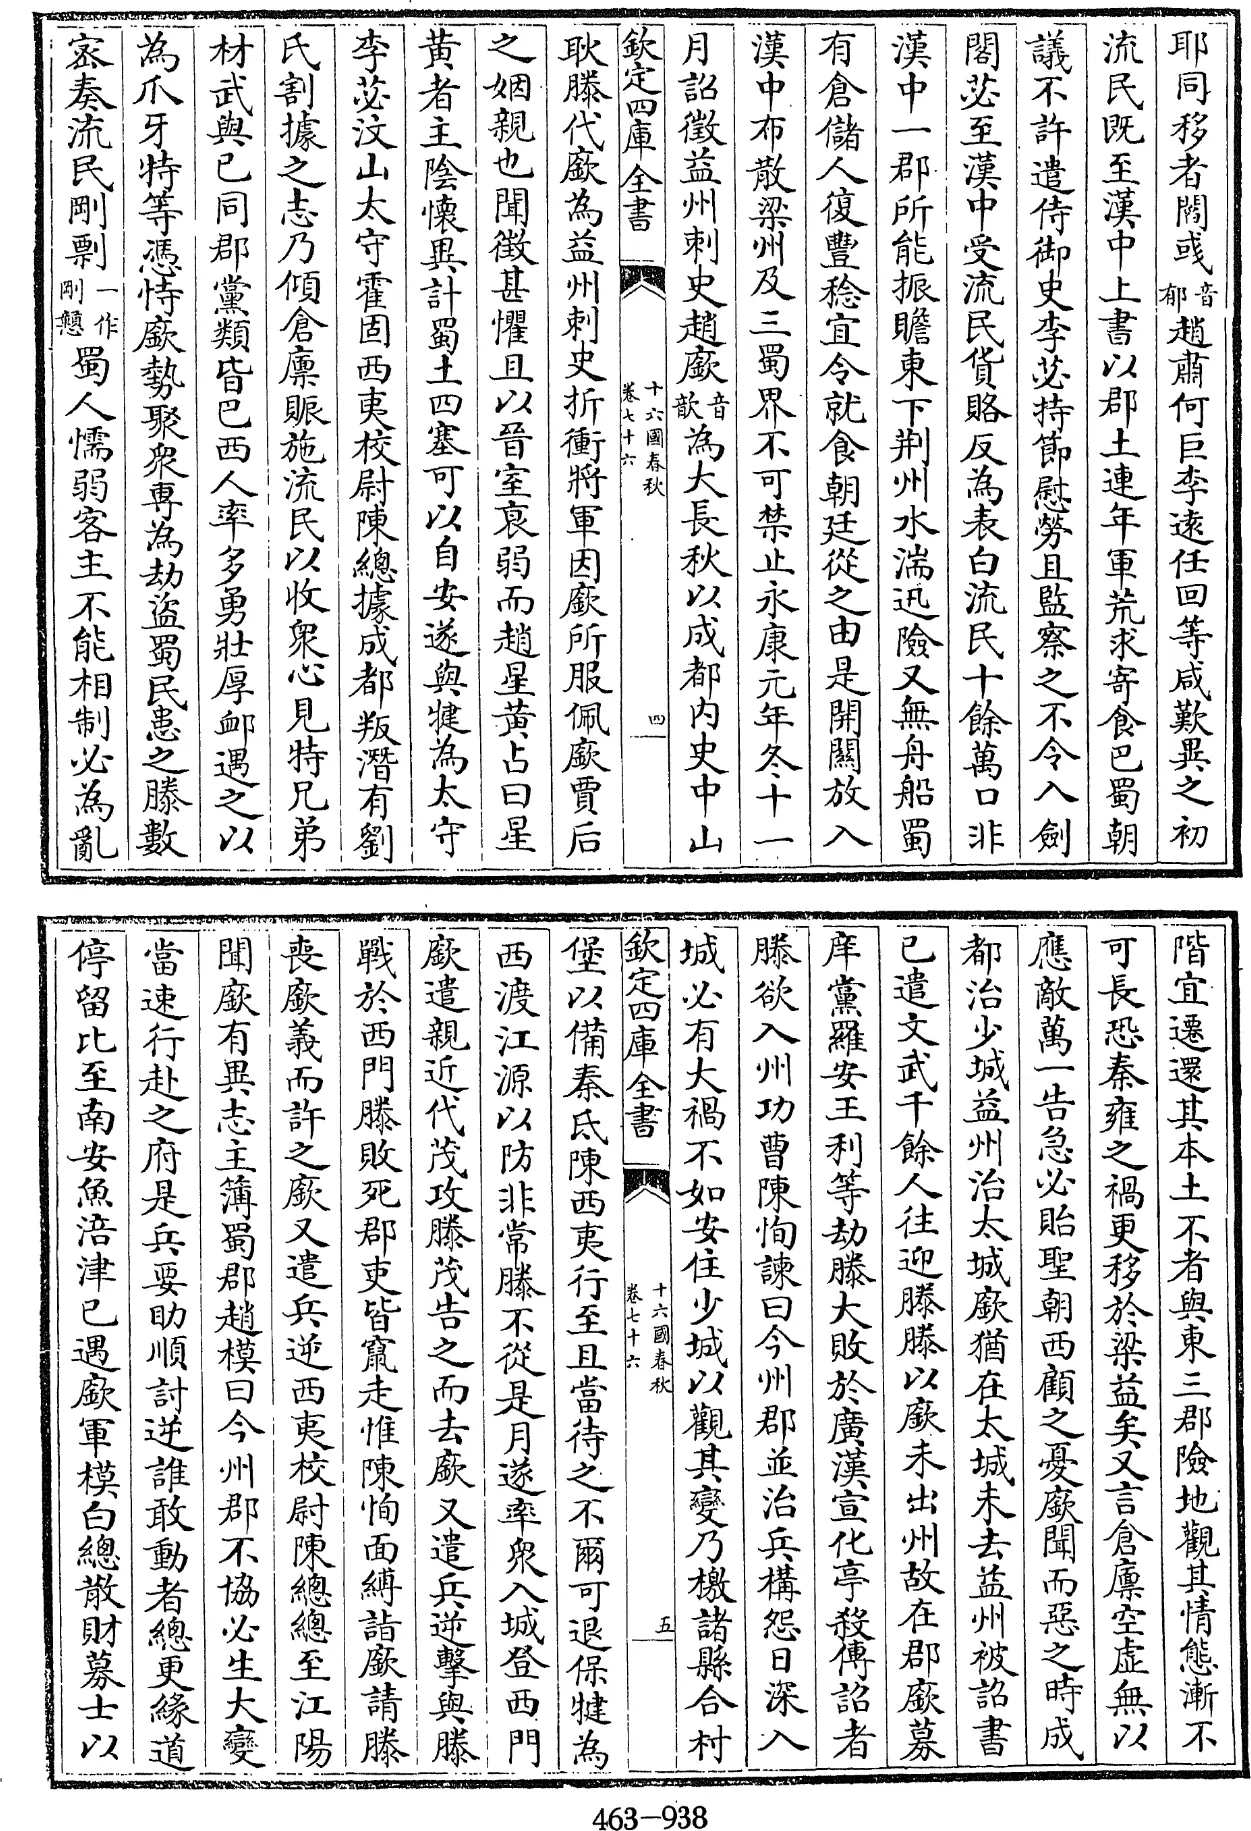 耶同移者閻或音郁趙肅何巨李遠任回等咸歎異之初
流民既至漢中上書以郡土連年軍荒求寄食巴蜀朝
議不許遣侍御史李苾持節慰勞且監察之不令入劍
閣苾至漢中受流民貨賂反為表白流民十餘萬口非
漢中一郡所能振贍東下荆州水湍迅險又無舟船蜀
有倉儲人復豐稔宜令就食朝廷從之由是開關放入
漢中布散梁州及三蜀界不可禁止永康元年冬十一
月詔徵益州刺史趙廞音歆為大長秋以成都内史中山
欽定四庫全書
十六國春秋
卷七十六
四
耿滕代廞為益州刺史折衝將軍因廞所服佩廞賈后
之姻親也聞徵甚懼且以晉室衰弱而趙星黄占曰星
黄者主陰懷異計蜀土四塞可以自安遂與犍為太守
李苾汶山太守霍固西夷校尉陳總據成都叛潛有劉
氏割據之志乃傾倉廪賑施流民以收衆心見特兄弟
材武與已同郡黨類皆巴西人率多勇壯厚卹遇之以
為爪牙特等憑恃廞勢聚衆専為劫盜蜀民患之滕數
宻奏流民剛剽一作剛戇蜀人懦弱客主不能相制必為亂
階宜遷還其本土不者與東三郡險地觀其情態漸不
可長恐秦雍之禍更移於梁益矣又言倉廪空虚無以
應敵萬一告急必貽聖朝西顧之憂廞聞而惡之時成
都治少城益州治太城廞猶在太城未去益州被詔書
已遣文武千餘人往迎滕滕以廞未出州故在郡廞募
庠黨羅安王利等劫滕大敗於廣漢宣化亭殺傳詔者
滕欲入州功曹陳恂諫曰今州郡並治兵構怨日深入
城必有大禍不如安住少城以觀其變乃檄諸縣合村
欽定四庫全書
十六國春秋
卷七十六
五
堡以備秦氐陳西夷行至且當待之不爾可退保犍為
西渡江源以防非常滕不從是月遂率衆入城登西門
廞遣親近代茂攻滕茂告之而去廞又遣兵逆擊與滕
戰於西門滕敗死郡吏皆竄走惟陳恂面縛詣廞請滕
喪廞義而許之廞又遣兵逆西夷校尉陳總總至江陽
聞廞有異志主簿蜀郡趙模曰今州郡不協必生大變
當速行赴之府是兵要助順討逆誰敢動者總更緣道
停留比至南安魚涪津已遇廞軍模白總散財募士以
463-938